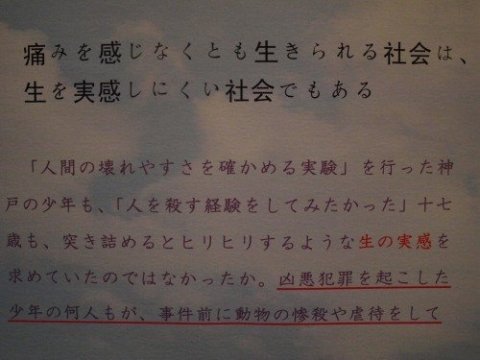 痛みを感じなくとも生きられる社会は、
生を実感しにくい社会でもある
「人間の壊れやすさを確かめる実験」を行った神
戸の少年も、「人を殺す経験をしてみたかった」十七
歳も、突き詰めるとヒリヒリするような生の実感を
求めていたのではなかったか。凶悪犯罪を起こした
少年の何人もが、事件前に動物の惨殺や虐待をして